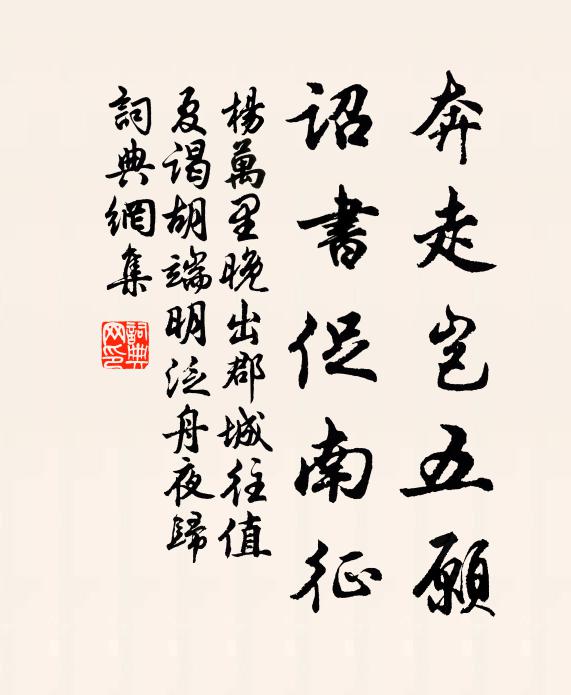 奔走岂五願
詔書促南征
楊萬里晚出郡城往值
夏謁胡端明泛舟夜歸
詞典網集
詞典网印